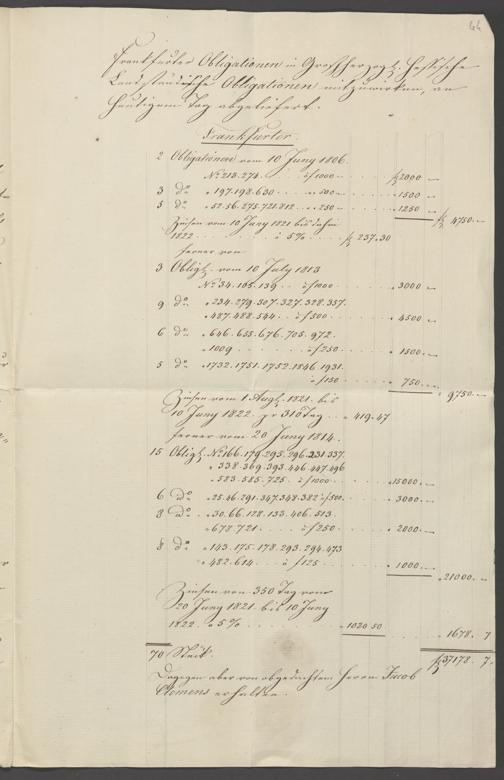 64
Frankfurter Obligationen in Großherzogl. Hessische
Landständische Obligationen mitzuwirken, an
heutigem Tag abgeliefert.
Frankfurter.
2 Obligationen vom 10 Juny 1806.
No 213.274. à f1000 f 2000
3 do " 197.198.630. " 500 " 1500
5 do " 52.56.275.721.812. " 250 " 1250
f 4750.
Zinsen vom 10 Juny 1821 bis dahin
1822 à 5% f 237.30
ferner von
3 Obligt. vom 10 July 1813
No 34.105.139 à f1000 " 3000
9 do " 234.279.307.327.328.357.
" 487.488.544. à f500 " 4500
6 do " 646.655.676.705.972.
" 1009 à f250 " 1500
5 do " 1732.1751.1752.1846.1931.
à f150 " 750
" 9750.
Zinsen vom 1 Augt. 1821. bis
10 Juny 1822. pr 310 Tag " 419.47
ferner vom 20 Juny 1814.
15 Obligt. No 166.179.295.296.331.337.
" 338.369.393.446.447.496
" 583.585.725. à f1000 " 15000
6 do " 25.46.291.347.348.382 à f500 " 3000
8 do " 30.66.128.133.406.513.
" 678.721. à f250 " 2000
8 do " 143.175.178.293.294.473
" 482.614. à f125 " 1000
" 21000.
Zinsen von 350 Tag vom
20 Juny 1821 bis 10 Juny
1822 à 5% " 1020 50
" 1678. 7
70 Stück.
f 37178. 7.
Dagegen aber von obgedachtem Herrn Jacob
Clemens erhalten.